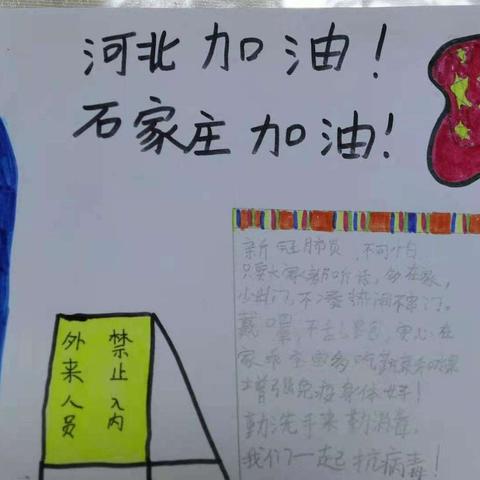 河北加油!
石家庄加油!
外来人员
禁止入内
新冠肺炎,不可怕
只要大家都听话,多在家,
少出门,不凑热闹不串门。
戴口罩,不乱,安心在
家 多吃蔬菜和水果
增强免疫身体好!
勤洗手来勤消毒,
我们一起抗病毒!